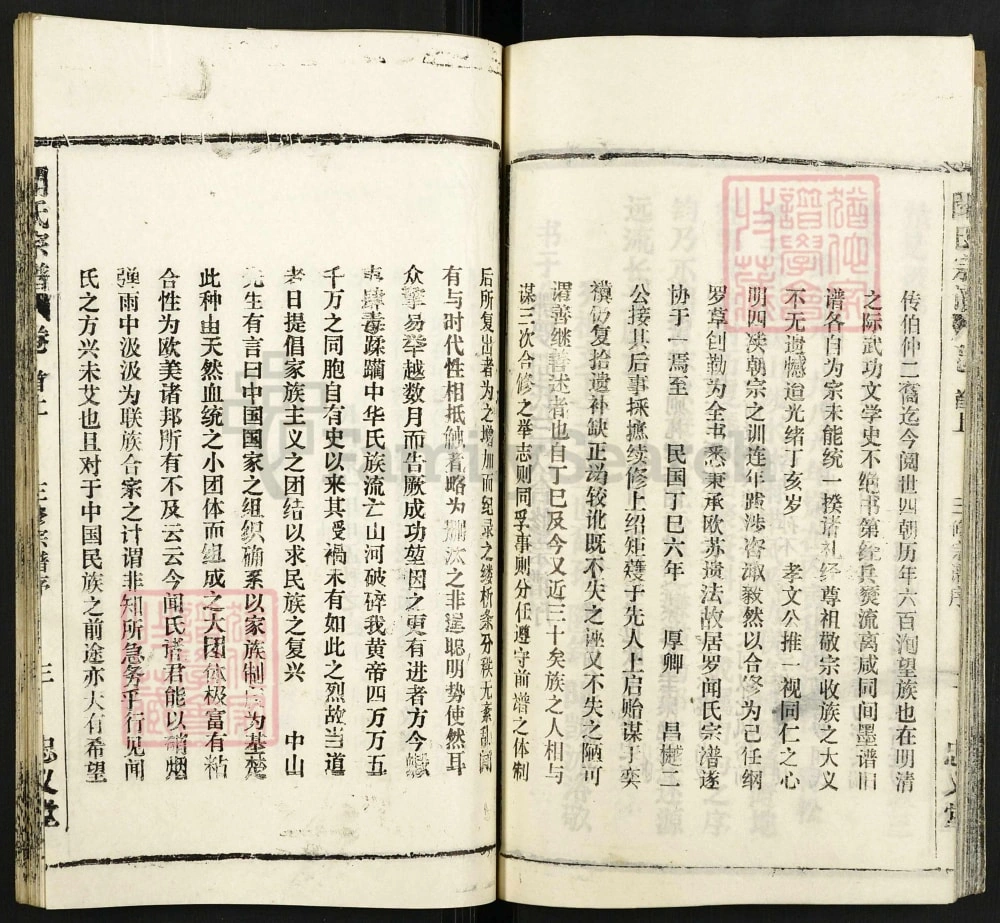 传伯仲二裔迄今阅世四朝历年六百洵望族也在明清
之际武功文学史不绝书第经兵燹流离咸同间墨谱旧
谱各自为宗未能统一揆诸礼经尊祖敬宗收族之大义
不无遗憾道光绪丁亥岁 孝文公推一视同仁之心
明四决朝宗之训连年跋涉咨诹毅然以合修为己任纲
罗草创勒为全书悉秉承欧苏遗法故居罗闻氏宗谱遂
协于一焉至 民国丁巳六年 厚卿 昌樾二
公接其后事採摭续修上绍矩矱于先人上启贻谋于奕
禩仍复拾遗补缺正沩较讹既不失之诬又不失之陋可
谓善继善述者也自丁巳及今又近三十矣族之人相与
谋三次合修之举志则同孚事则分任遵守前谱之体制
后所复出者为之增加而纪录之缕析条分秩无紊乱间
有与时代性相抵触者略为删汰之非逞聪明势使然耳
众擎易举越数月而告厥成功堃因之更有进者方今
夷肆毒蹂躏中华氏族流亡山河破碎我黄帝四万万五
千万之同胞自有史以来其受禍未有如此之烈故当道
者日提倡家族主义之团结以求民族之复兴 中山
先生有言曰中国国家之组织确系以家族制度为基楚
此种由天然血统之小团体而组成之大团体极富有粘
合性为欧美诸邦所有不及云云今闻氏诸君能以硝烟
弹雨中汲汲为联族合宗之计谓非知所急务乎行见闻
氏之方兴未艾也且对于中国民族之前途亦大有希望
氏宗谱 卷首上 三修宗谱序 三 忠义堂